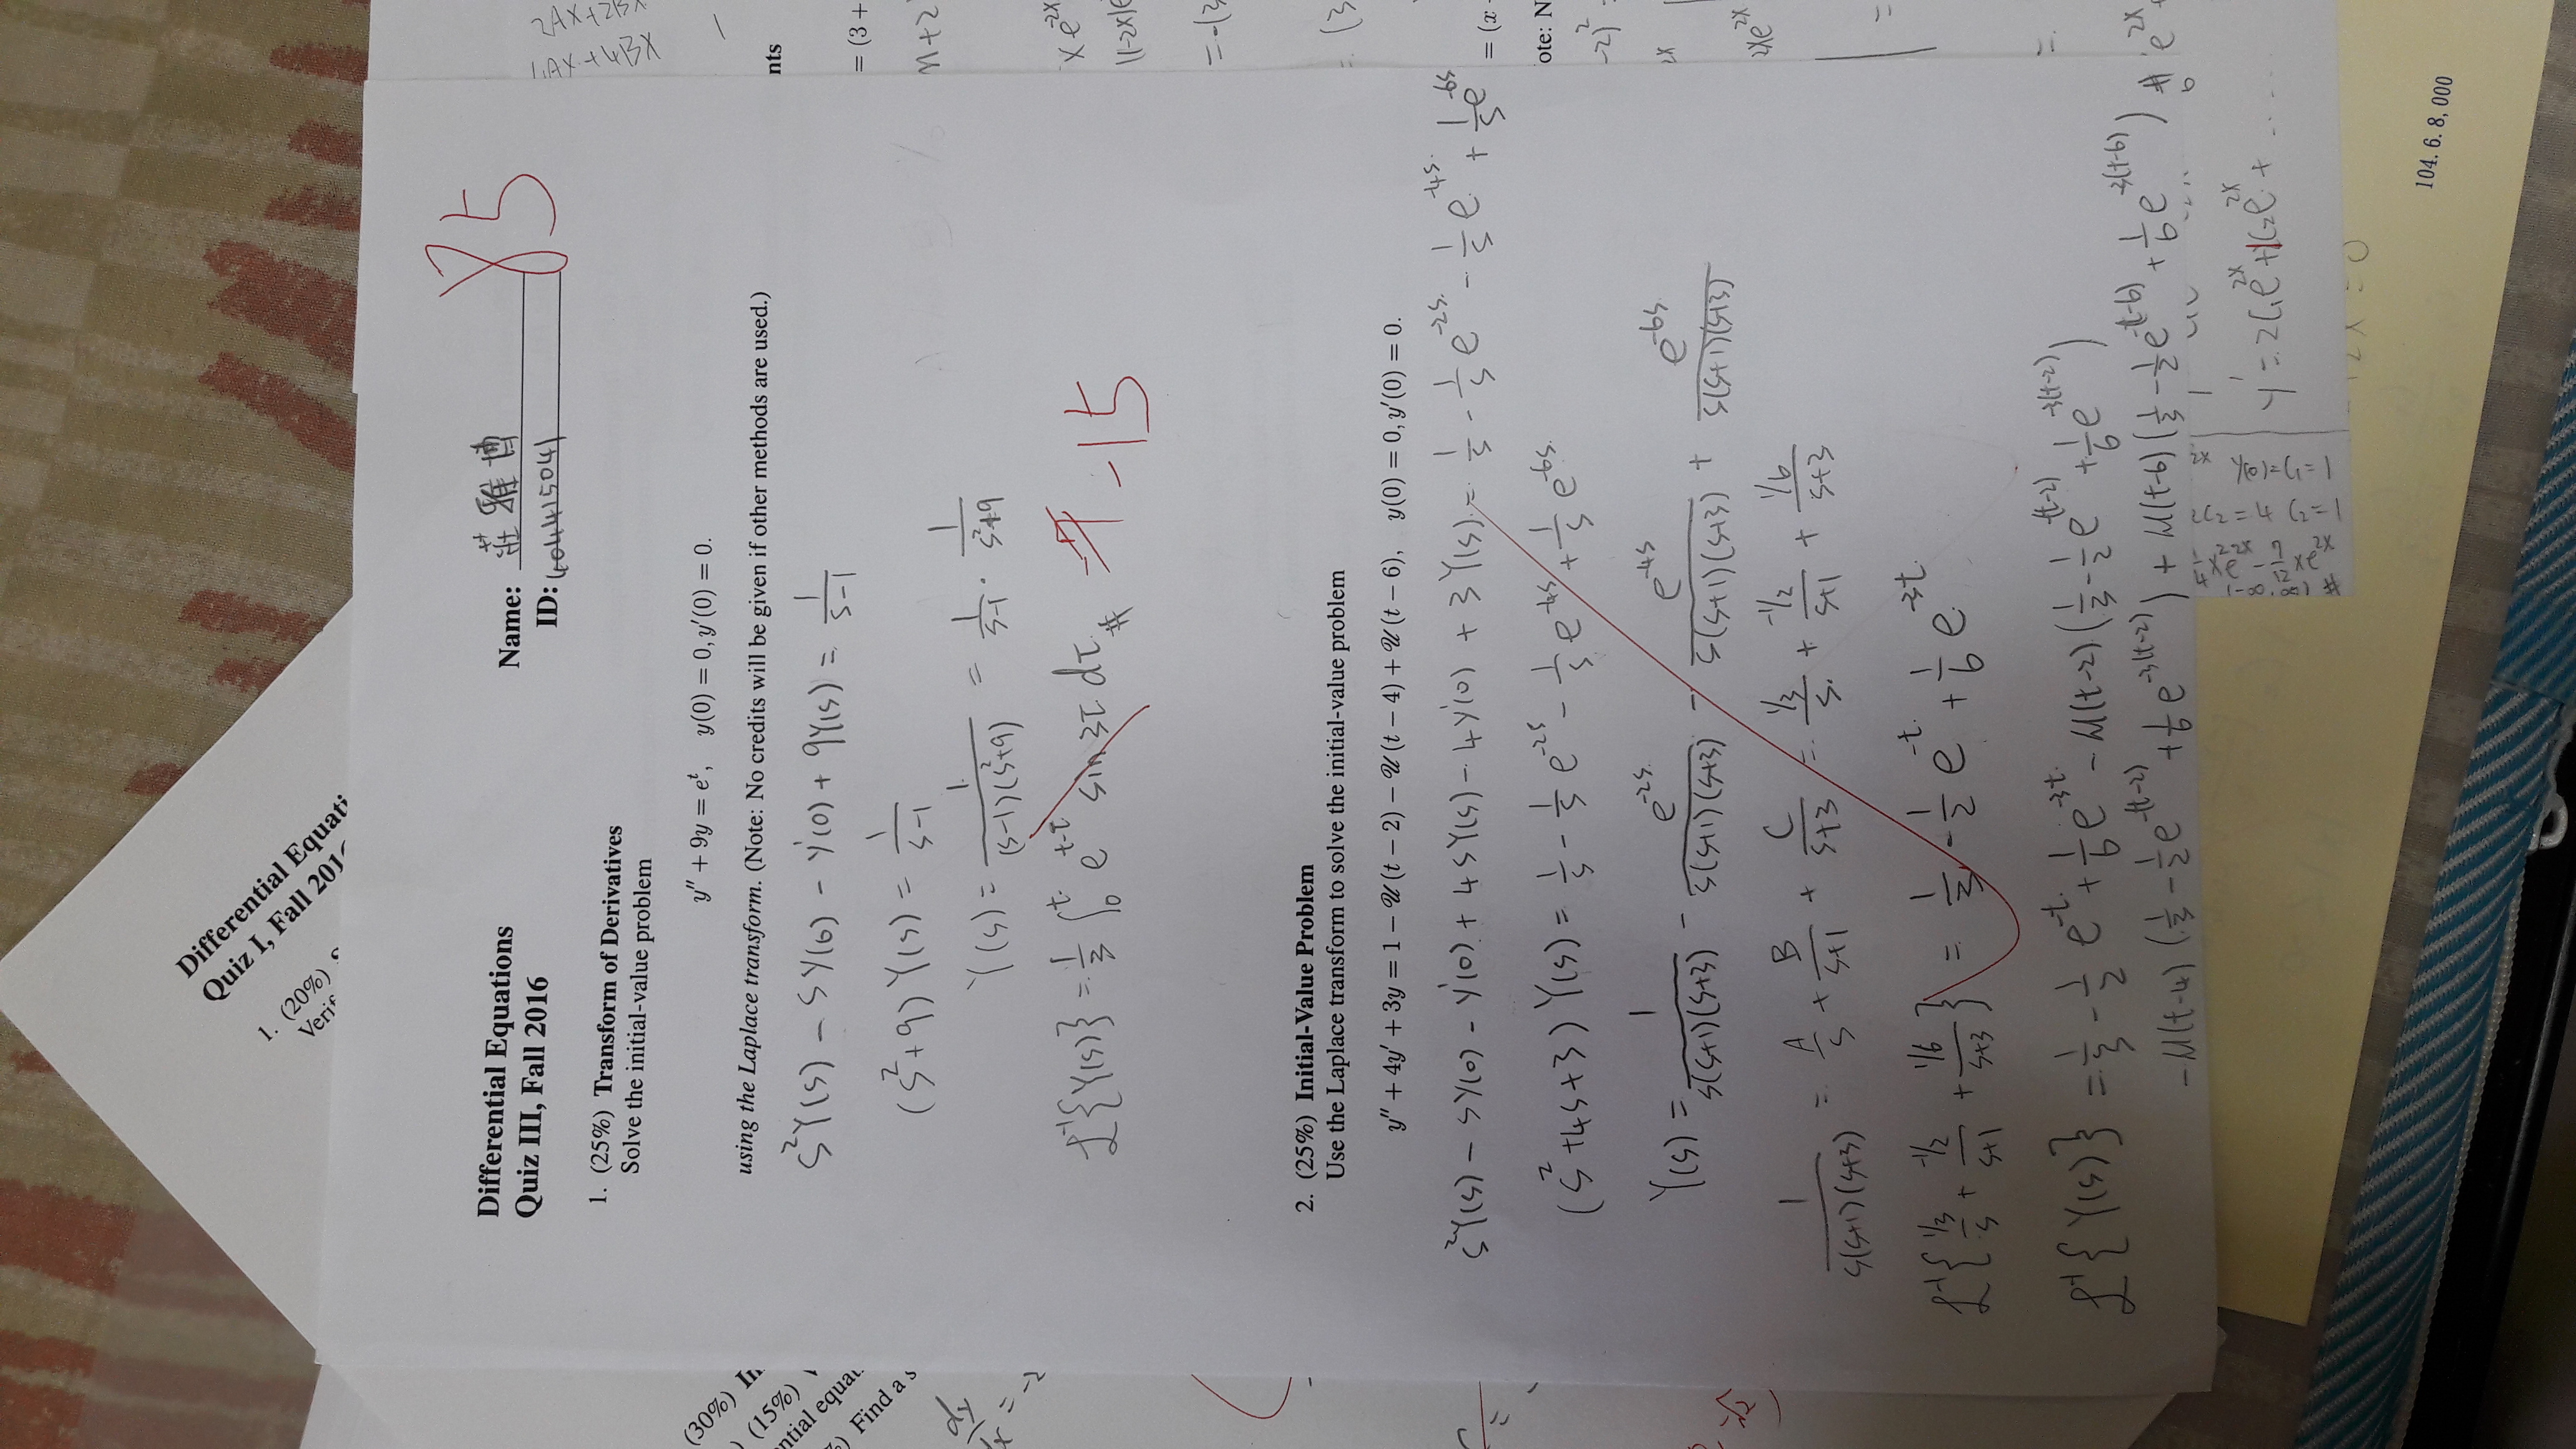 Differential Equati
Quiz I, Fall 201
1. (20%) S
Verif
Differential Equations
Quiz III, Fall 2016
Name: 莊雅
ID: 404415041
85
1. (25%) Transform of Derivatives
Solve the initial-value problem
y″ + 9y = eᵗ, y(0) = 0, y′(0) = 0.
using the Laplace transform. (Note: No credits will be given if other methods are used.)
s²Y(s) − sY(0) − Y'(0) + 9Y(s) = 1/(s−1)
(s²+9) Y(s) = 1/(s−1)
Y(s) = 1/((s−1)(s²+9)) = 1/(s−1) · 1/(s²+9)
ℒ⁻¹{Y(s)} = 1/3 ∫₀ᵗ e^(t-τ) sin3τ dτ #
−15
2. (25%) Initial-Value Problem
Use the Laplace transform to solve the initial-value problem
y″ + 4y′ + 3y = 1 − 𝒰(t − 2) − 𝒰(t − 4) + 𝒰(t − 6), y(0) = 0, y′(0) = 0.
s²Y(s) − sY(0) − Y'(0) + 4sY(s) − 4Y'(0) + 3Y(s) = 1/s − 1/s e^(-2s) − 1/s e^(-4s) + 1/s e^(-6s)
(s²+4s+3) Y(s) = 1/s − 1/s e^(-2s) − 1/s e^(-4s) + 1/s e^(-6s)
Y(s) = 1/(s(s+1)(s+3)) − e^(-2s)/(s(s+1)(s+3)) − e^(-4s)/(s(s+1)(s+3)) + e^(-6s)/(s(s+1)(s+3))
1/(s(s+1)(s+3)) = A/s + B/(s+1) + C/(s+3) = (1/3)/s + (-1/2)/(s+1) + (1/6)/(s+3)
ℒ⁻¹{(1/3)/s + (-1/2)/(s+1) + (1/6)/(s+3)} = 1/3 − 1/2 e^(-t) + 1/6 e^(-3t)
ℒ⁻¹{Y(s)} = 1/3 − 1/2 e^(-t) + 1/6 e^(-3t) − U(t−2) (1/3 − 1/2 e^(-(t-2)) + 1/6 e^(-3(t-2)))
− U(t−4) (1/3 − 1/2 e^(-(t-2)) + 1/6 e^(-3(t-2))) + U(t−6) (1/3 − 1/2 e^(-(t-6)) + 1/6 e^(-3(t-6))) #
(30%) In
(15%)
ntial equat
Find a s
dy
nts
= (3 +
n+2
xe^(-2x)
= (x
ote: N
2xe^(2x)
y' = 2C₁e^(2x) + C₂e^(2x) + ......
104. 6. 8, 000